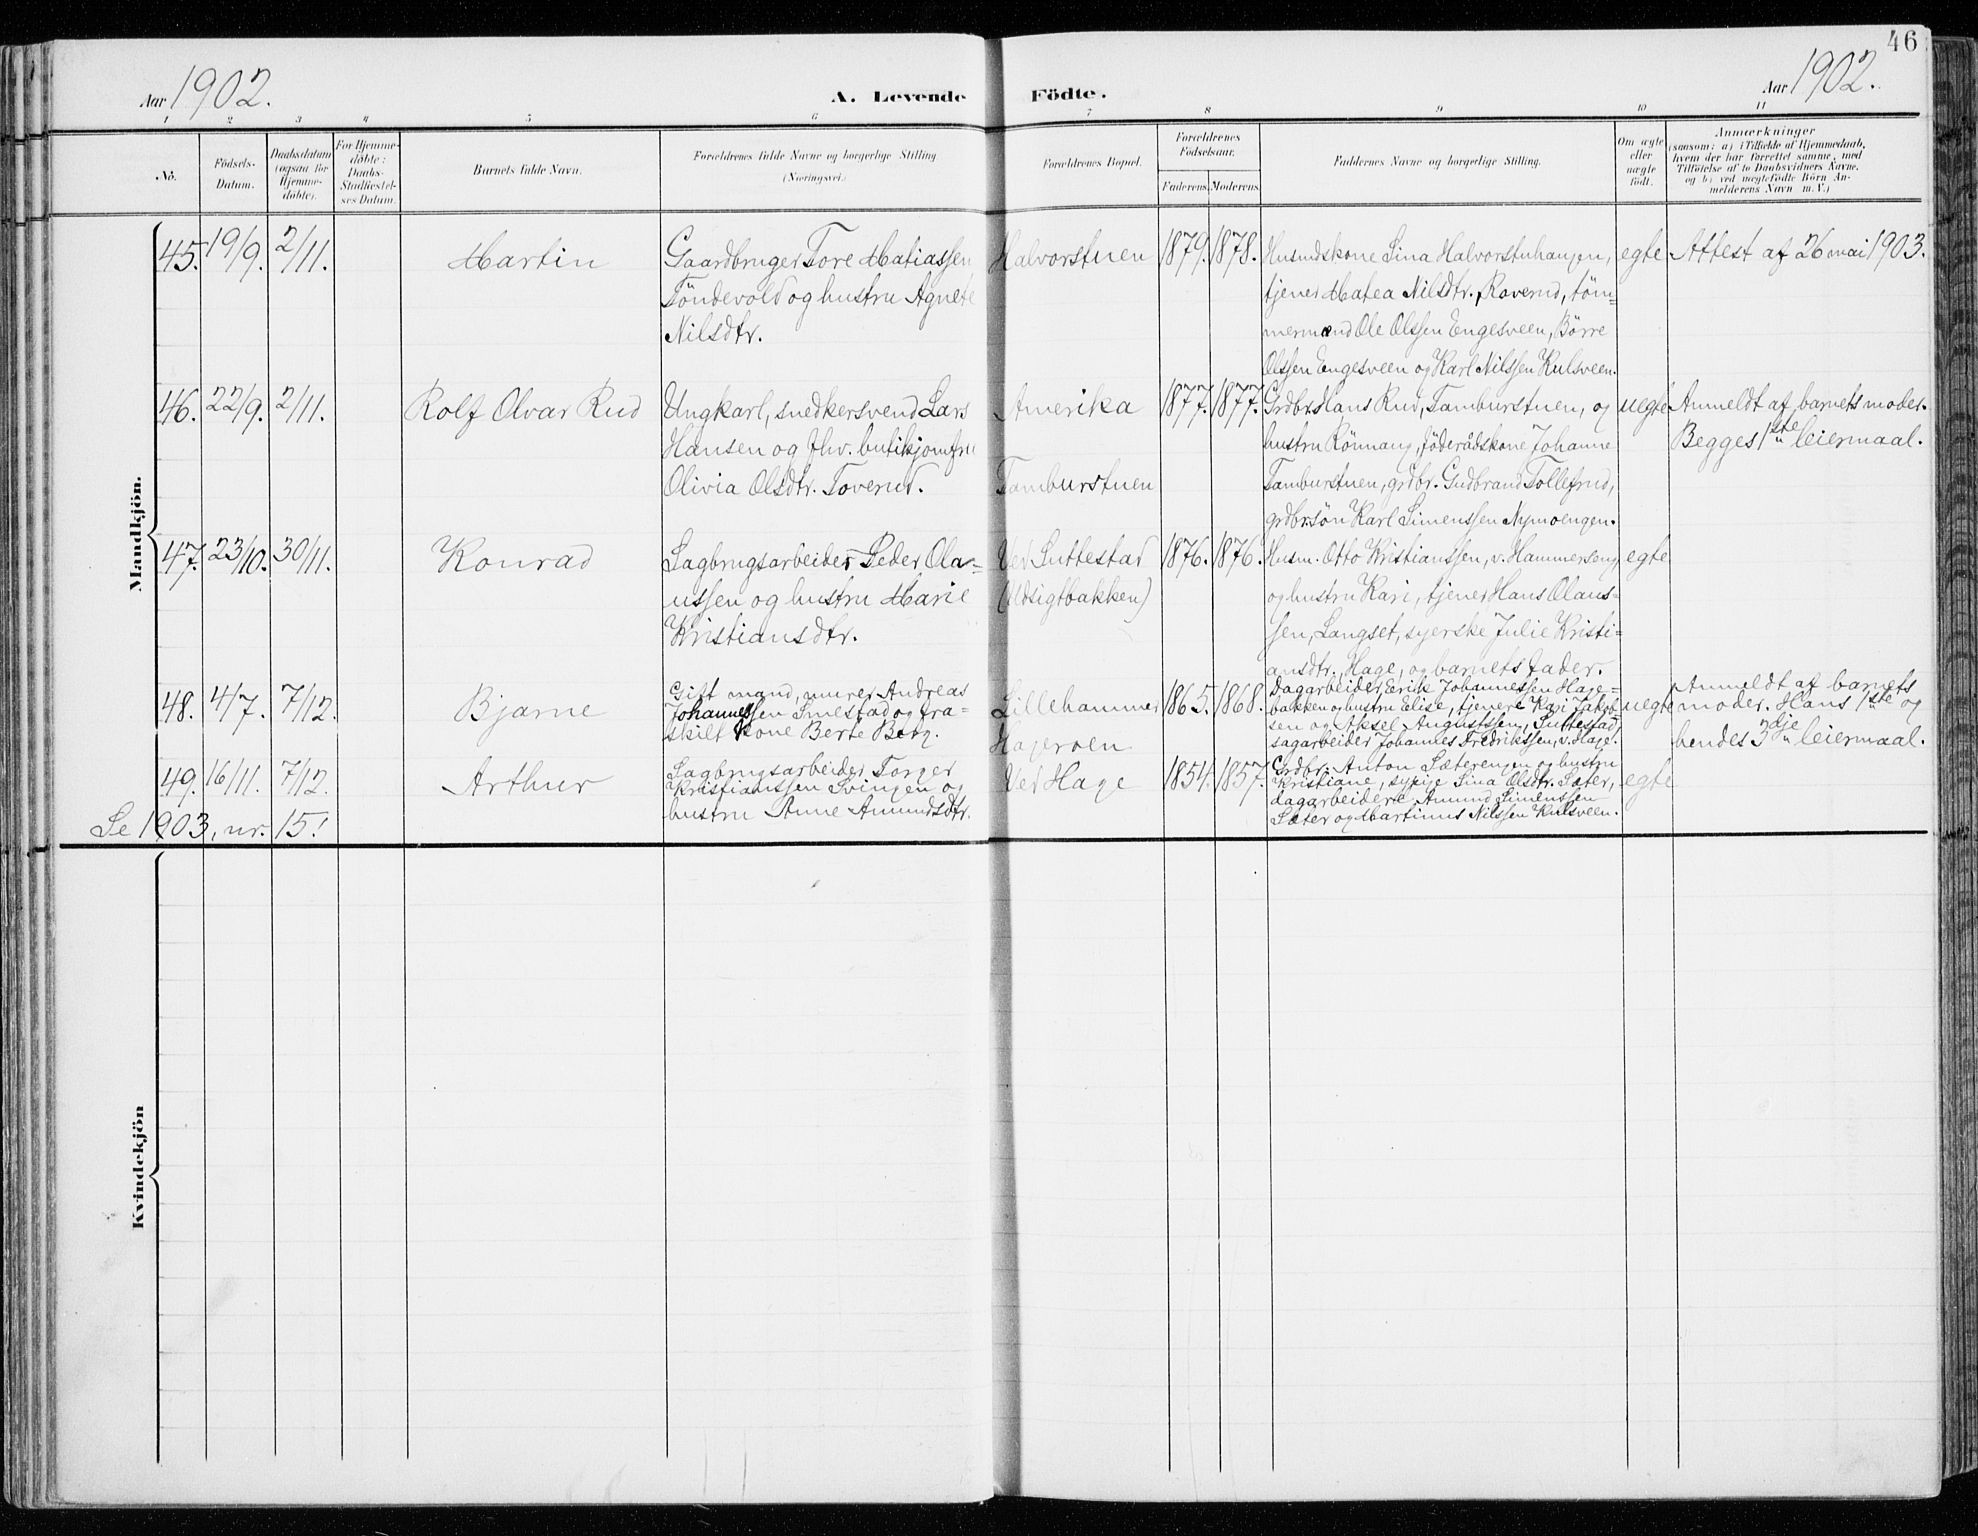 46
Aar 1902.
A. Levende Födte.
Aar 1902.
1 2 3 4 5 6 7 8 9 10 11
No.
Födsels-
Datum.
Daabsdatum
(ogsaa for
Hjemme-
døbte).
For Hjemme-
døbte:
Daabs-
Stadfæstel-
ses Datum.
Barnets fulde Navn.
Forældrenes fulde Navne og borgerlige Stilling
(Næringsvei.)
Forældrenes Bopæl.
Forældrenes
Födselsaar.
Faderens. Moderens.
Faddernes Navne og borgerlige Stilling.
Om ægte
eller
uægte
født.
Anmærkninger
(saasom: a) i Tilfælde af Hjemmedaab,
hvem der har forrettet samme, med
Tilföielse af to Daabsvidners Navne,
og b) ved uægtefødte Börn An-
melderens Navn m. V.)
Mandkjön.
45. 19/9. 2/11.
Martin
Gaardbruger Tore Matiassen
Töndevold og hustru Agnete
Nilsdtr.
Halvorstuen
1879. 1878.
Husmdskone Lina Halvorstuhaugen,
tjener Matea Nilsdtr. Roverud, töm=
mermand Ole Olssen Engesveen, Börre
Olssen Engesveen og Karl Nilssen Kulsveen.
egte
Attest af 26 mai 1903.
46. 22/9. 2/11.
Rolf Olvar Rud
Ungkarl, snedkersvend Lars
Hansen og fhv. butikjomfru
Olivia Olsdtr. Toverud.
Amerika
Tamburstuen
1877. 1877.
Grdbr. Hans Rud, Tamburstuen, og
hustru Rönnaug, föderådskone Johanne
Tamburstuen, grdbr. Gudbrand Tollefrud,
grdbr.sön Karl Simenssen Nymoengen.
uegte
Anmeldt af barnets moder.
Begges 1ste leiermaal.
47. 23/10. 30/11.
Konrad
Sagbrugsarbeider Peder Ola=
ussen og hustru Marie
Kristiansdtr.
Ved Suttestad
(Udsigtbakken)
1876. 1876.
Husm. Otto Kristianssen, v. Hammerseng,
og hustru Kari, tjener Hans Olaus=
sen, Langset, syerske Julie Kristi=
ansdtr. Hage, og barnets fader.
egte
48. 4/7. 7/12.
Bjarne
Gift mand, murer Andreas
Johannessen Smestad og fra=
skilt kone Berte Berg.
Lillehammer
Hageroen
1865. 1868.
Dagarbeider Erik Johannessen Hage=
bakken og hustru Elise, tjenere Kari Jakob=
sen og Aksel Augustssen, Suttestad,
sagarbeider Johannes Fredrikssen, v. Hage.
uegte
Anmeldt af barnets
moder. Hans 1ste og
hendes 3dje leiermaal.
49. 16/11. 7/12.
Arthur
Sagbrugsarbeider Torger
Kristianssen Svingen og
hustru Anne Amundsdtr.
Ved Hage
1854. 1857.
Grdbr. Anton Sæterengen og hustru
Kristiane, sypige Lina Olsdtr. Sæter,
dagarbeidere Amund Simenssen
Sæter og Martinus Nilssen Kulsveen.
egte
Se 1903, nr. 15!
Kvindekjön